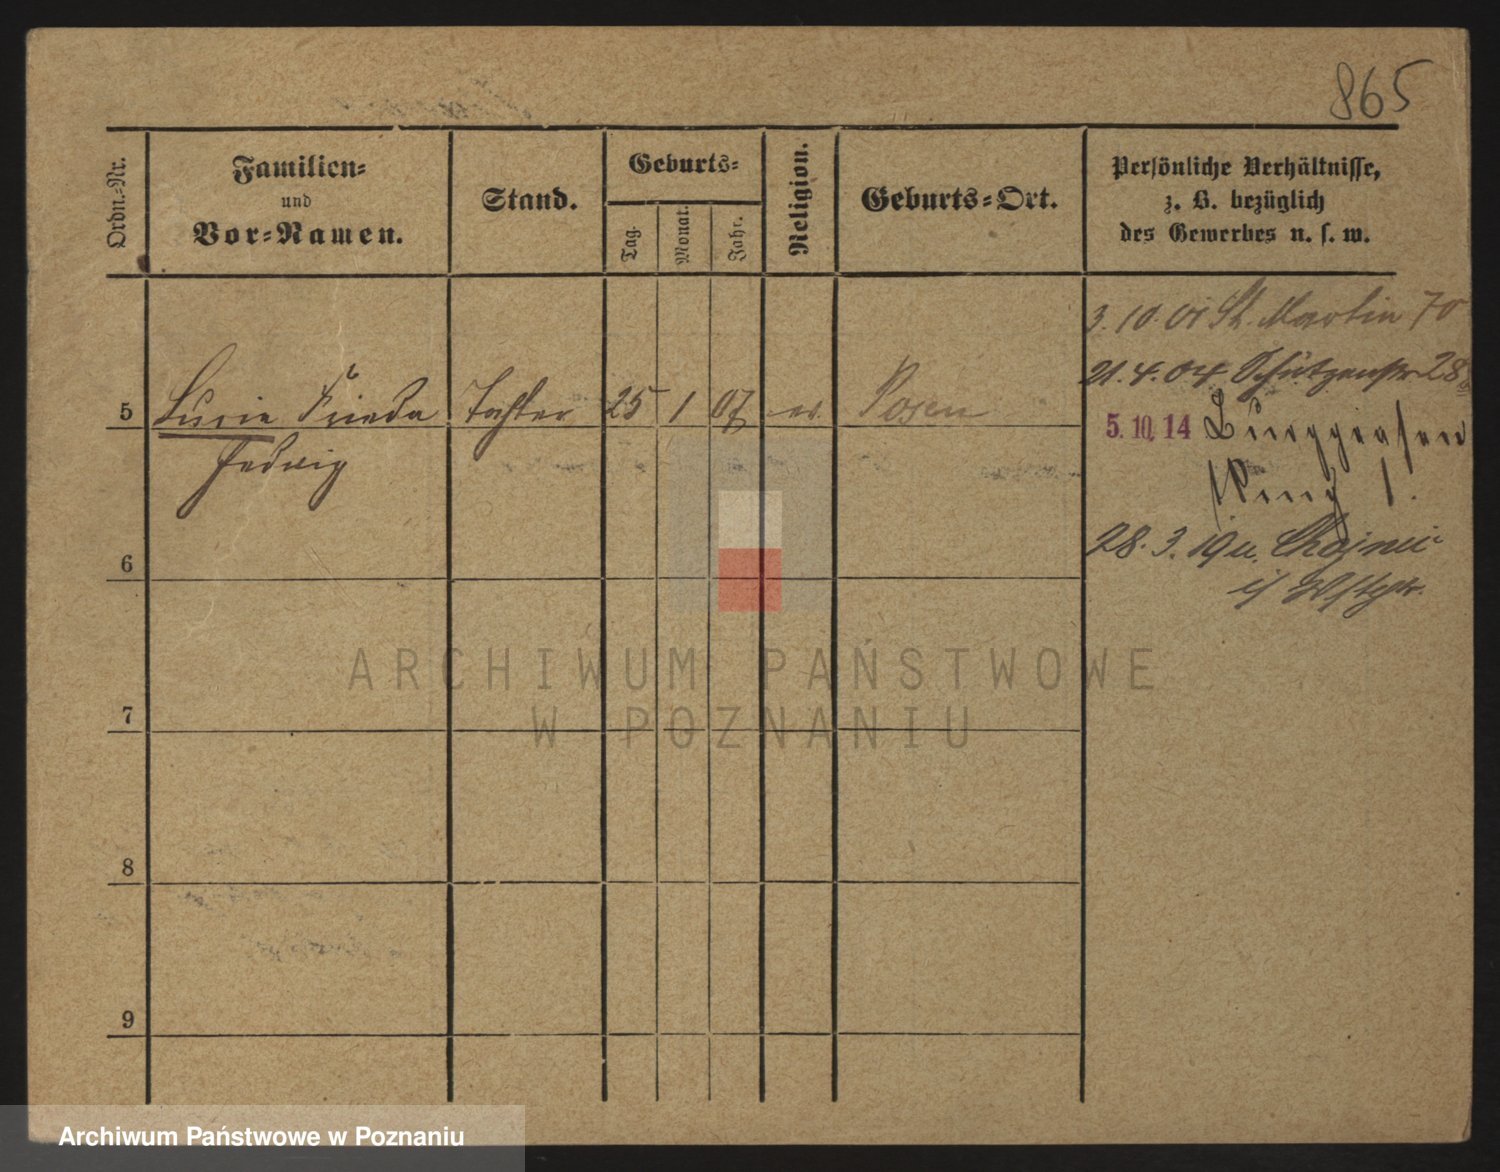 865
Ordn.-Nr.
Familien-
und
Vor-Namen.
Stand.
Geburts-
Tag.
Monat.
Jahr.
Religion.
Geburts-Ort.
Persönliche Verhältnisse,
z. B. bezüglich
des Gewerbes u. s. w.
3. 10. 01 St. Martin 70
21. 4. 04 Schützenstr 28
5 Lucie Frieda Tochter 25 1 07 ev. Posen
Hedwig
5. 10. 14
Ring 1.
28. 3. 19 u.
6
7
8
9
ARCHIWUM PAŃSTWOWE
W POZNANIU
Archiwum Państwowe w Poznaniu